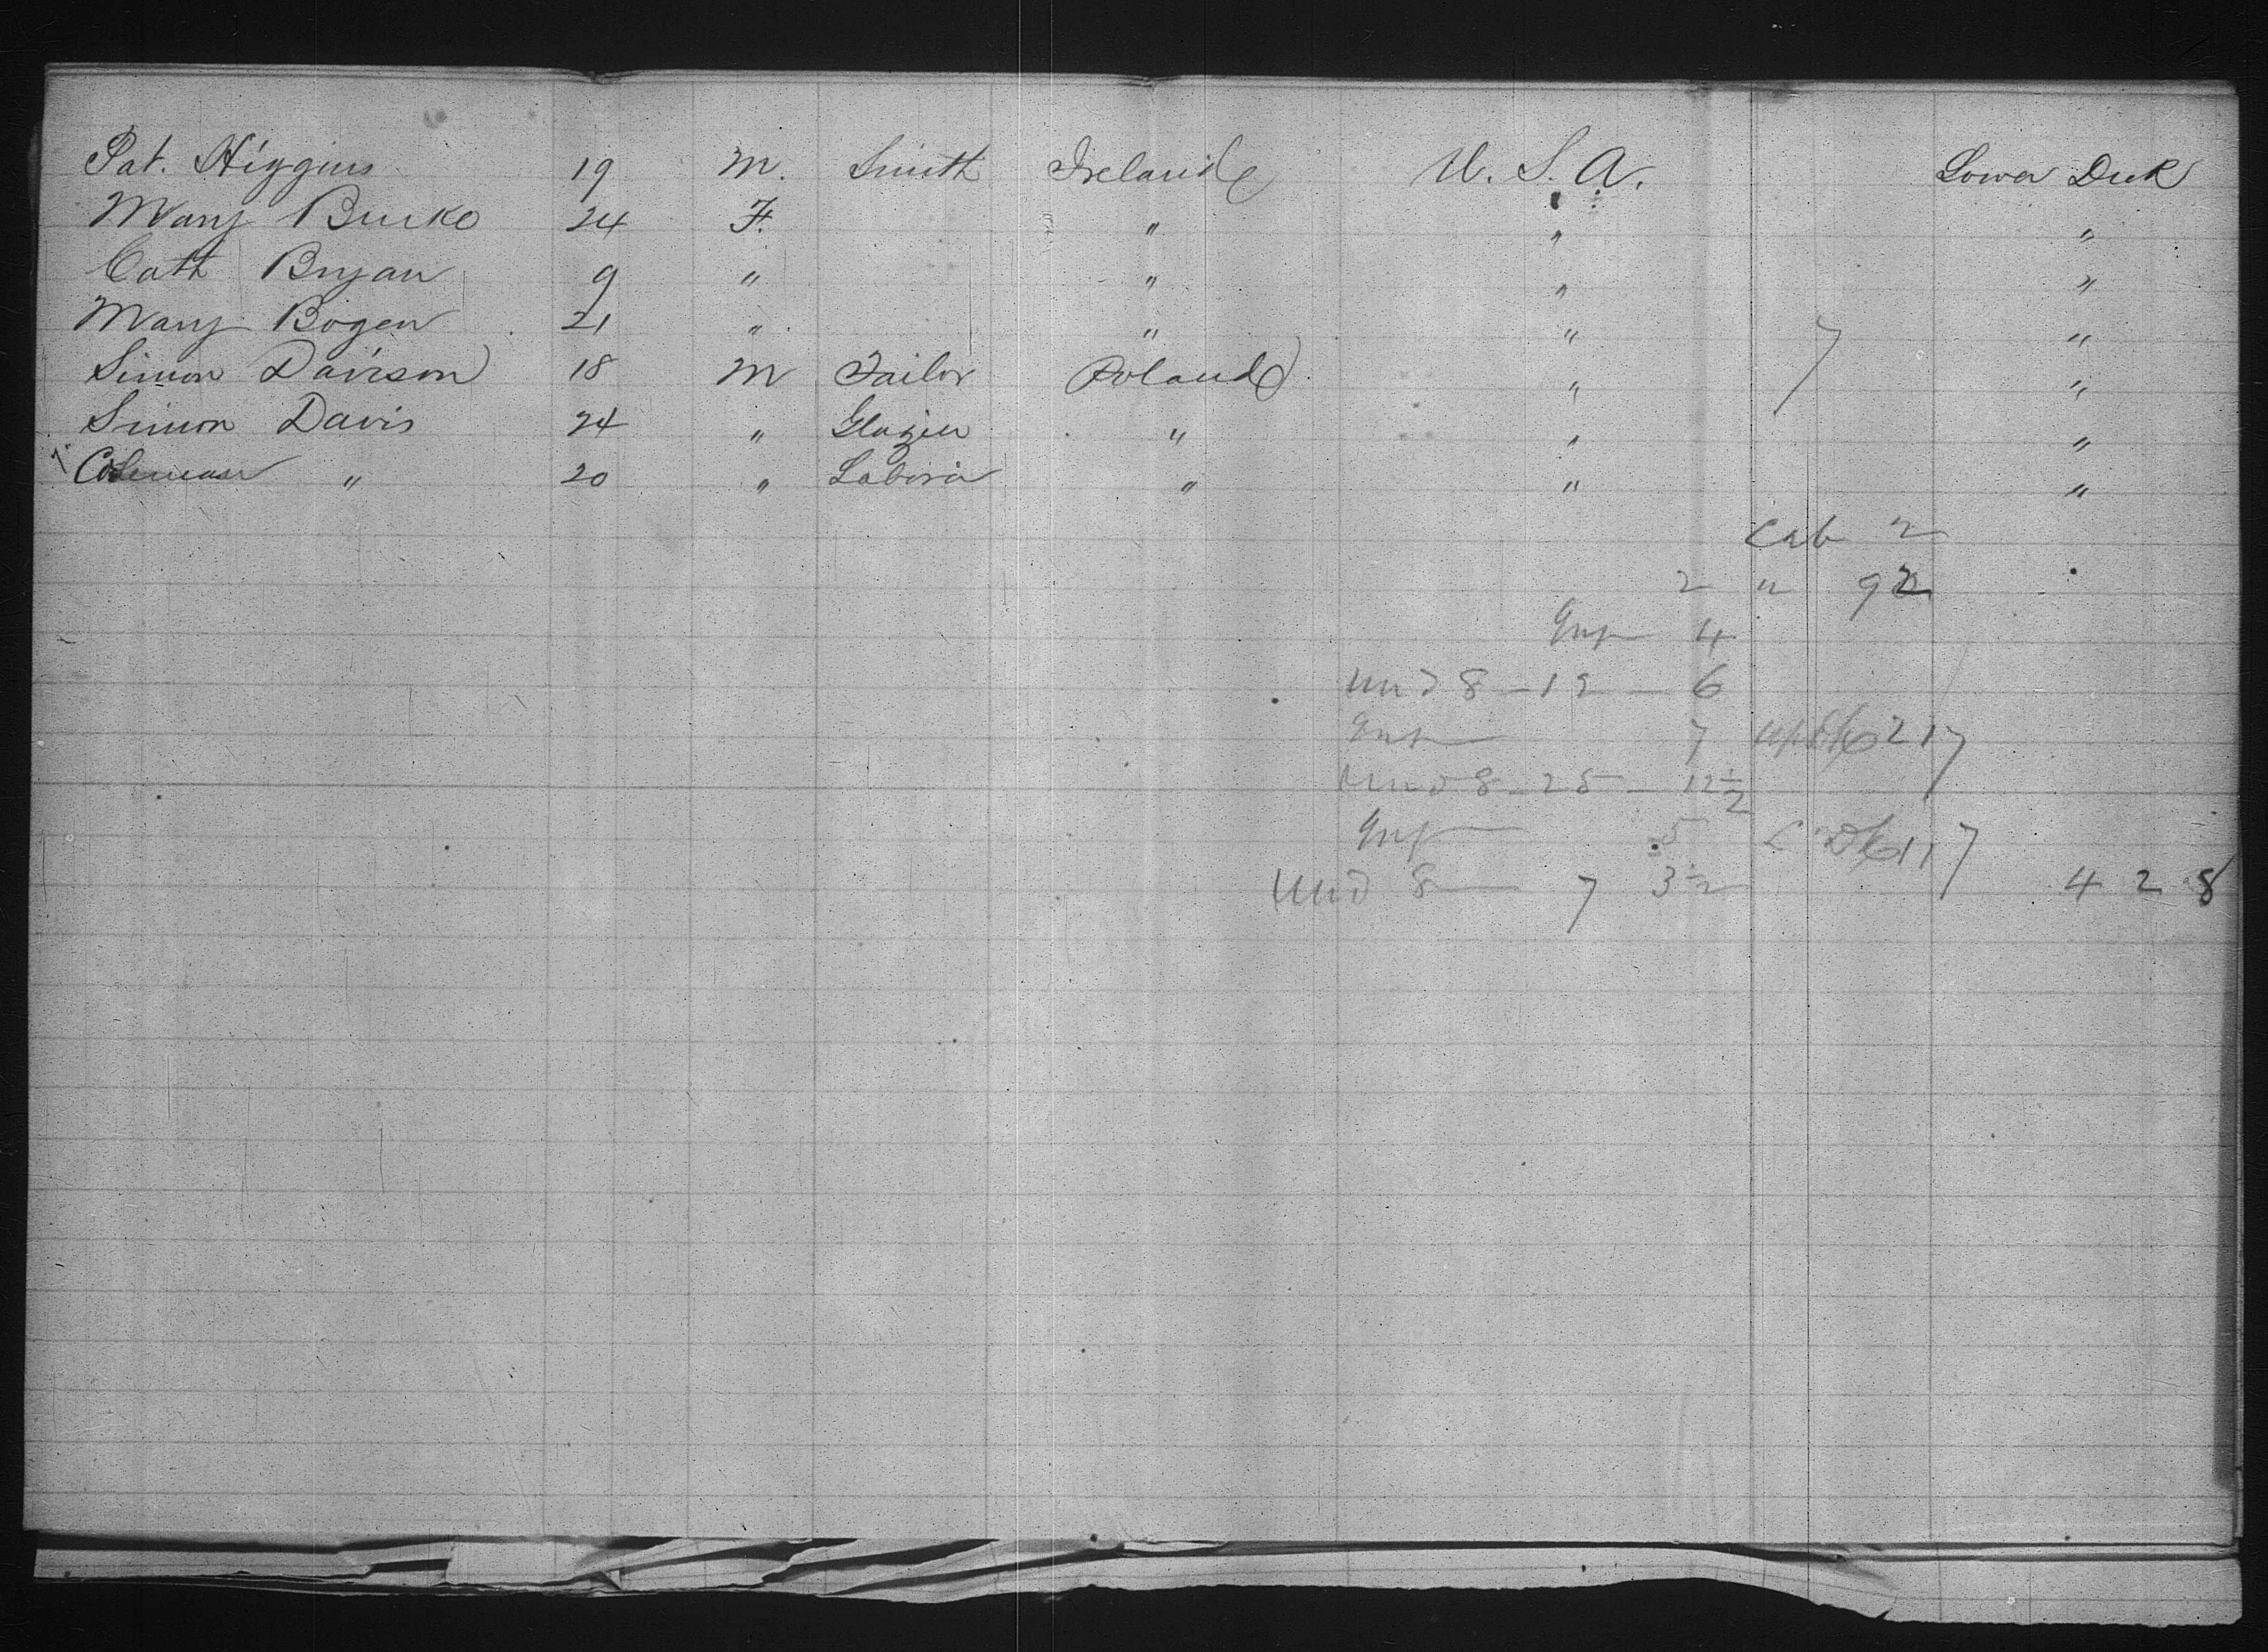 Pat. Higgins 19 M. Smith Ireland U. S. A. Lower Deck
Mary Burke 24 F. " " "
Cath Bryan 9 " " " "
Mary Bogen 21 " " " "
Simon Davison 18 M Tailor Poland " "
Simon Davis 24 " Glazier " " "
Coleman " 20 " Labora " " "
7
Cab 2
2 " 92
Inf 4
und 8 - 12 - 6
Inf 7 up Dk 217
und 8 - 25 - 12 1/2
Inf 5 L Dk 117
und 8 7 3 1/2 428